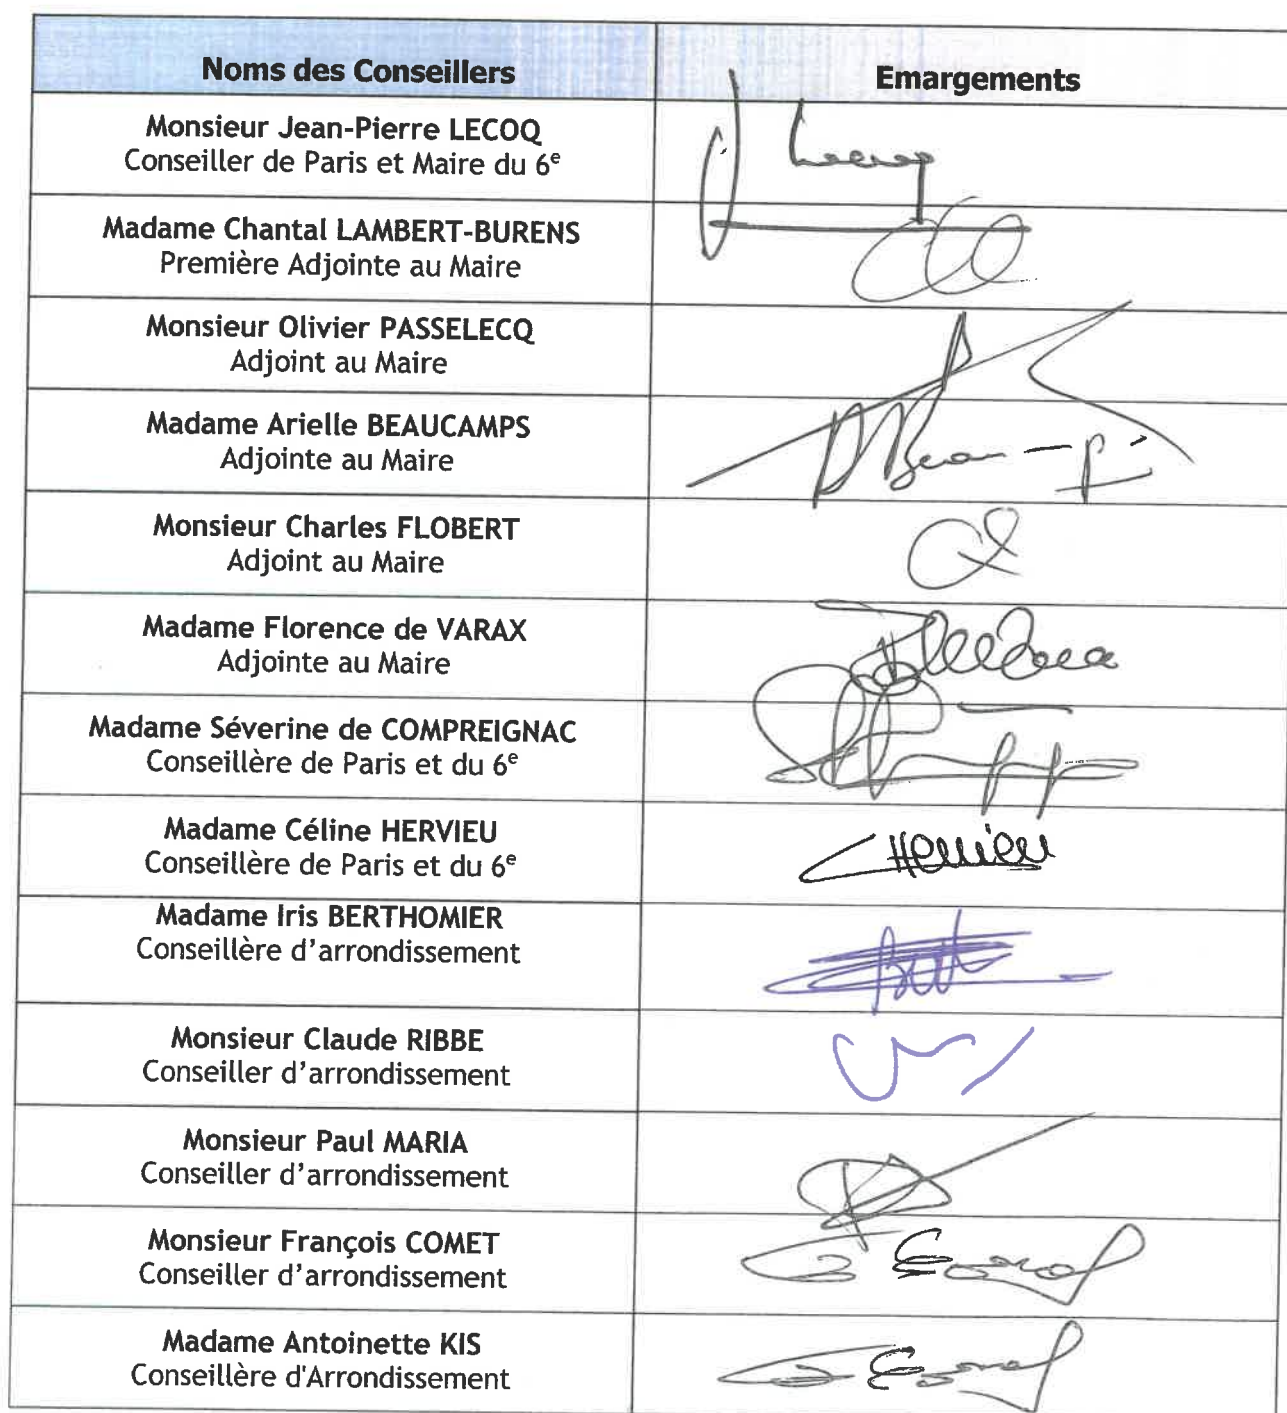 Noms des Conseillers
Emargements
Monsieur Jean-Pierre LECOQ
Conseiller de Paris et Maire du 6e
Lecoq
Madame Chantal LAMBERT-BURENS
Première Adjointe au Maire
Monsieur Olivier PASSELECQ
Adjoint au Maire
Madame Arielle BEAUCAMPS
Adjointe au Maire
Monsieur Charles FLOBERT
Adjoint au Maire
Madame Florence de VARAX
Adjointe au Maire
Madame Séverine de COMPREIGNAC
Conseillère de Paris et du 6e
Madame Céline HERVIEU
Conseillère de Paris et du 6e
CHervieu
Madame Iris BERTHOMIER
Conseillère d’arrondissement
Monsieur Claude RIBBE
Conseiller d’arrondissement
Monsieur Paul MARIA
Conseiller d’arrondissement
Monsieur François COMET
Conseiller d’arrondissement
Madame Antoinette KIS
Conseillère d'Arrondissement